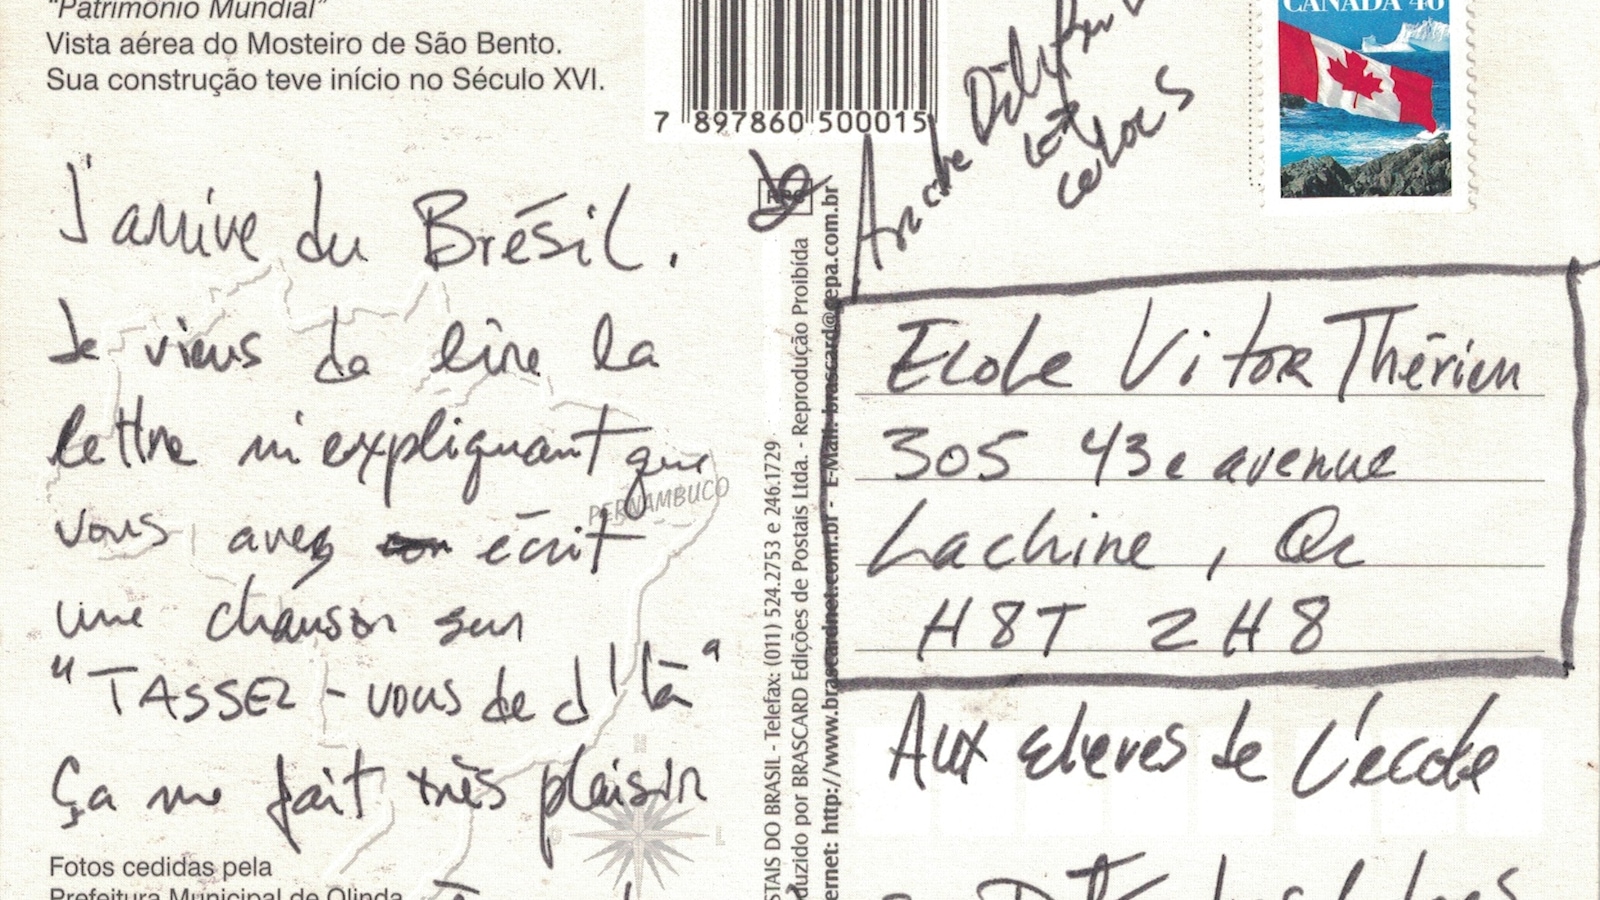 “Patrimônio Mundial”
Vista aérea do Mosteiro de São Bento.
Sua construção teve início no Século XVI.
7 897860 500015
CANADA 46
J'arrive du Brésil.
Je viens de lire la
lettre m'expliquant que
vous avez écrit
une chanson sur
"TASSEZ-vous de d'là"
Ça me fait très plaisir
PERNAMBUCO
Fotos cedidas pela
Prefeitura Municipal de Olinda
STAIS DO BRASIL - Telefax: (011) 524.2753 e 246.1729
duzido por BRASCARD Edições de Postais Ltda. - Reprodução Proibida
ernet: http://www.brascardnet.com.br - E-Mail: brascard@cepa.com.br
de
André
les
colocs
Ecole Vitor Thérien
305 43e avenue
Lachine, Qc
H8T 2H8
Aux eleves de L'école